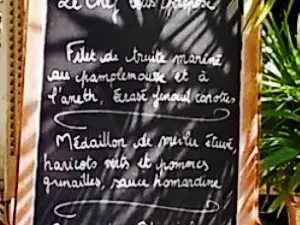 Le Chef vous propose
Filet de truite mariné
au pamplemousse et à
l'aneth, Écrasé fenouil carottes
Médaillon de merlu étuvé,
haricots verts et pommes
grenailles, sauce homardine